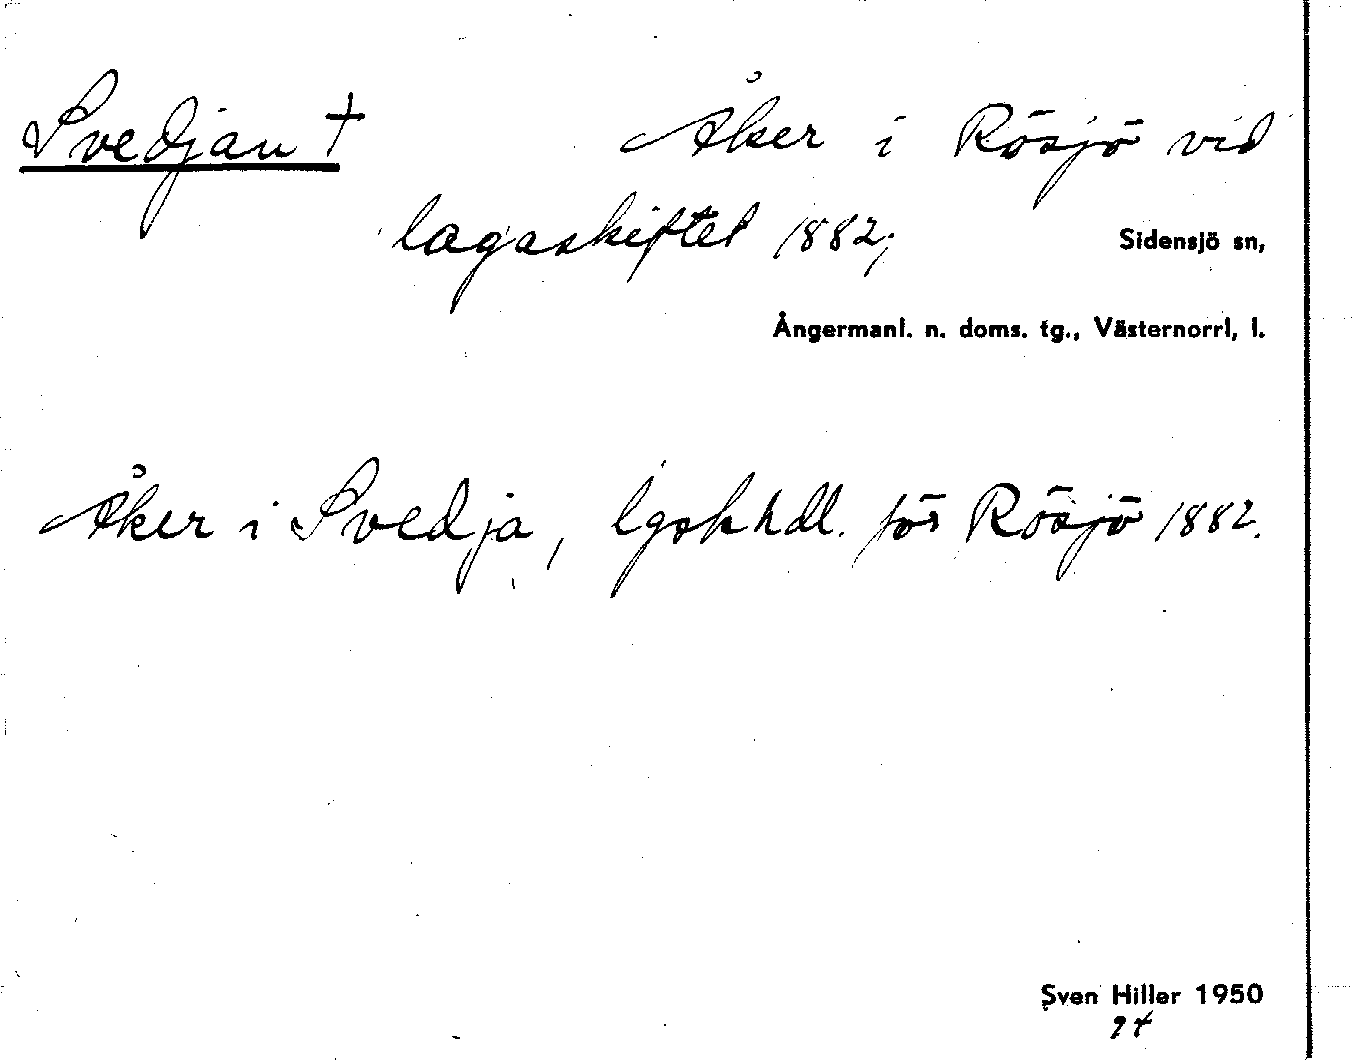 Svedjan † Åker i Rösjö vid
lagaskiftet 1882; Sidensjö sn,
Ångermanl. n. doms. tg., Västernorrl, l.
Åker i Svedja, lgskhdl. för Rösjö 1882.
Sven Hiller 1950